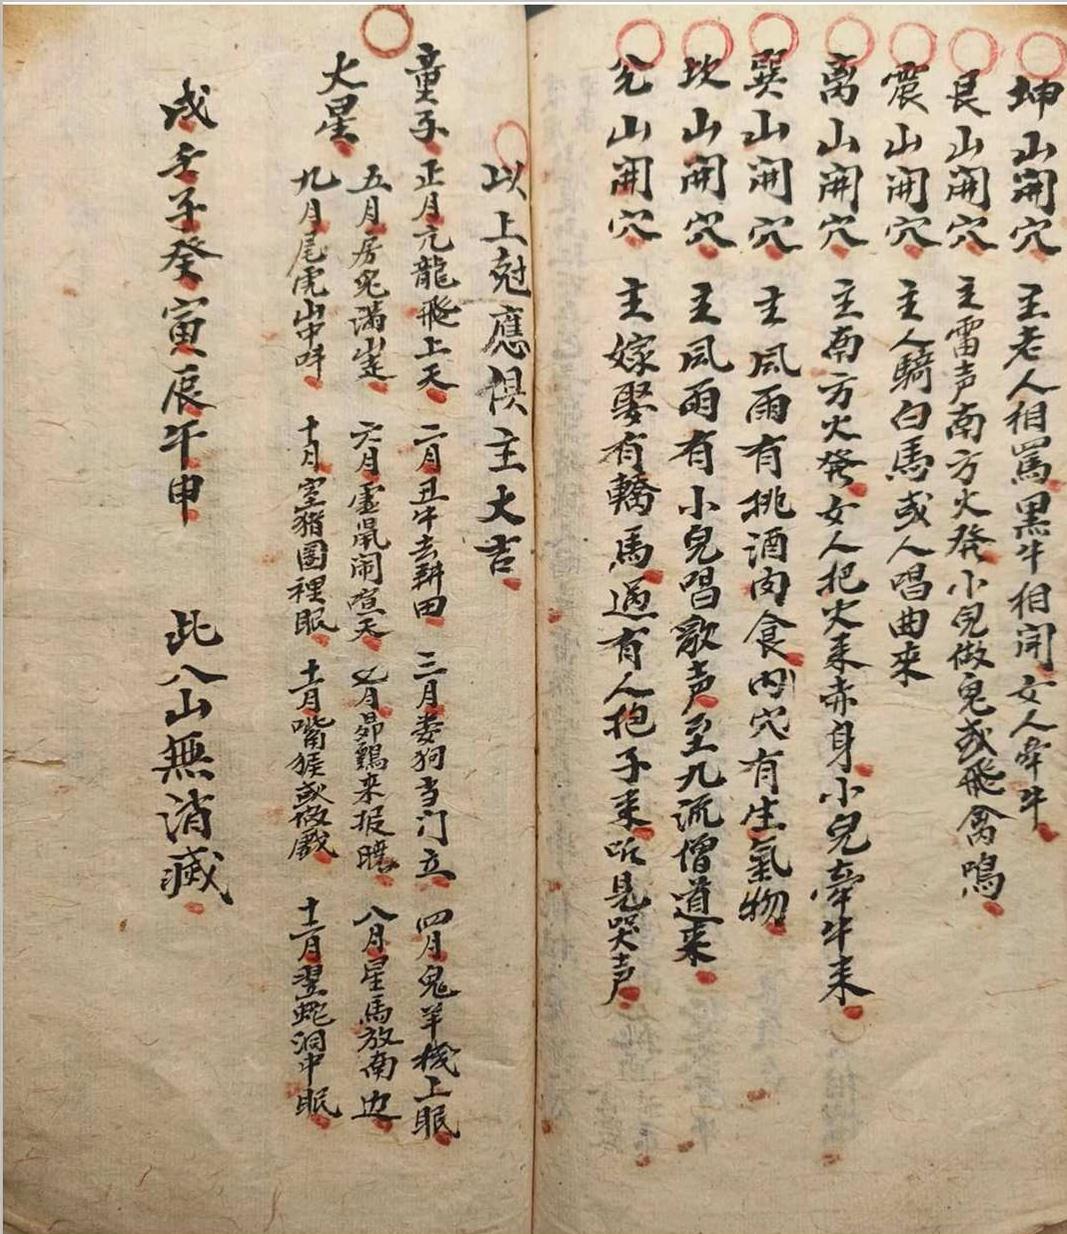 坤山開穴 主老人相罵黑牛相鬪女人牵牛
艮山開穴 主雷声南方火發小兒做鬼或飛禽鳴
震山開穴 主人騎白馬或人唱曲來
离山開穴 主南方火發女人把火来赤身小兒牵牛来
巽山開穴 主風雨有挑酒肉食内穴有生氣物
坎山開穴 主風雨有小兒唱歌声至九流僧道来
兌山開穴 主嫁娶有轎馬過有人抱子来听見哭声
以上尅應俱主大吉
童子 正月亢龍飛上天 二月丑牛去耕田 三月娄狗当门立 四月鬼羊機上眠
火星 五月房兔满山 六月虚鼠闹喧天 七月昴鷄来报曉 八月星馬放南边
九月尾虎山中 十月室猪圈裡眠 十一月嘴猴或做戲 十二月翌蛇洞中眠
戌壬子癸寅辰午申 此八山無消滅